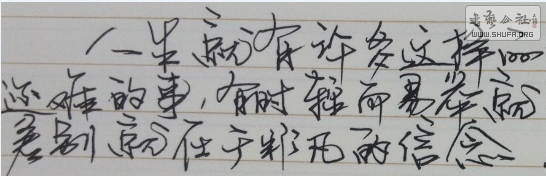 書藝公社
WWW.SHUFA.ORG
人一生就有许多这样
难的事，有时轻而易举就
差别就在于非凡的信念.